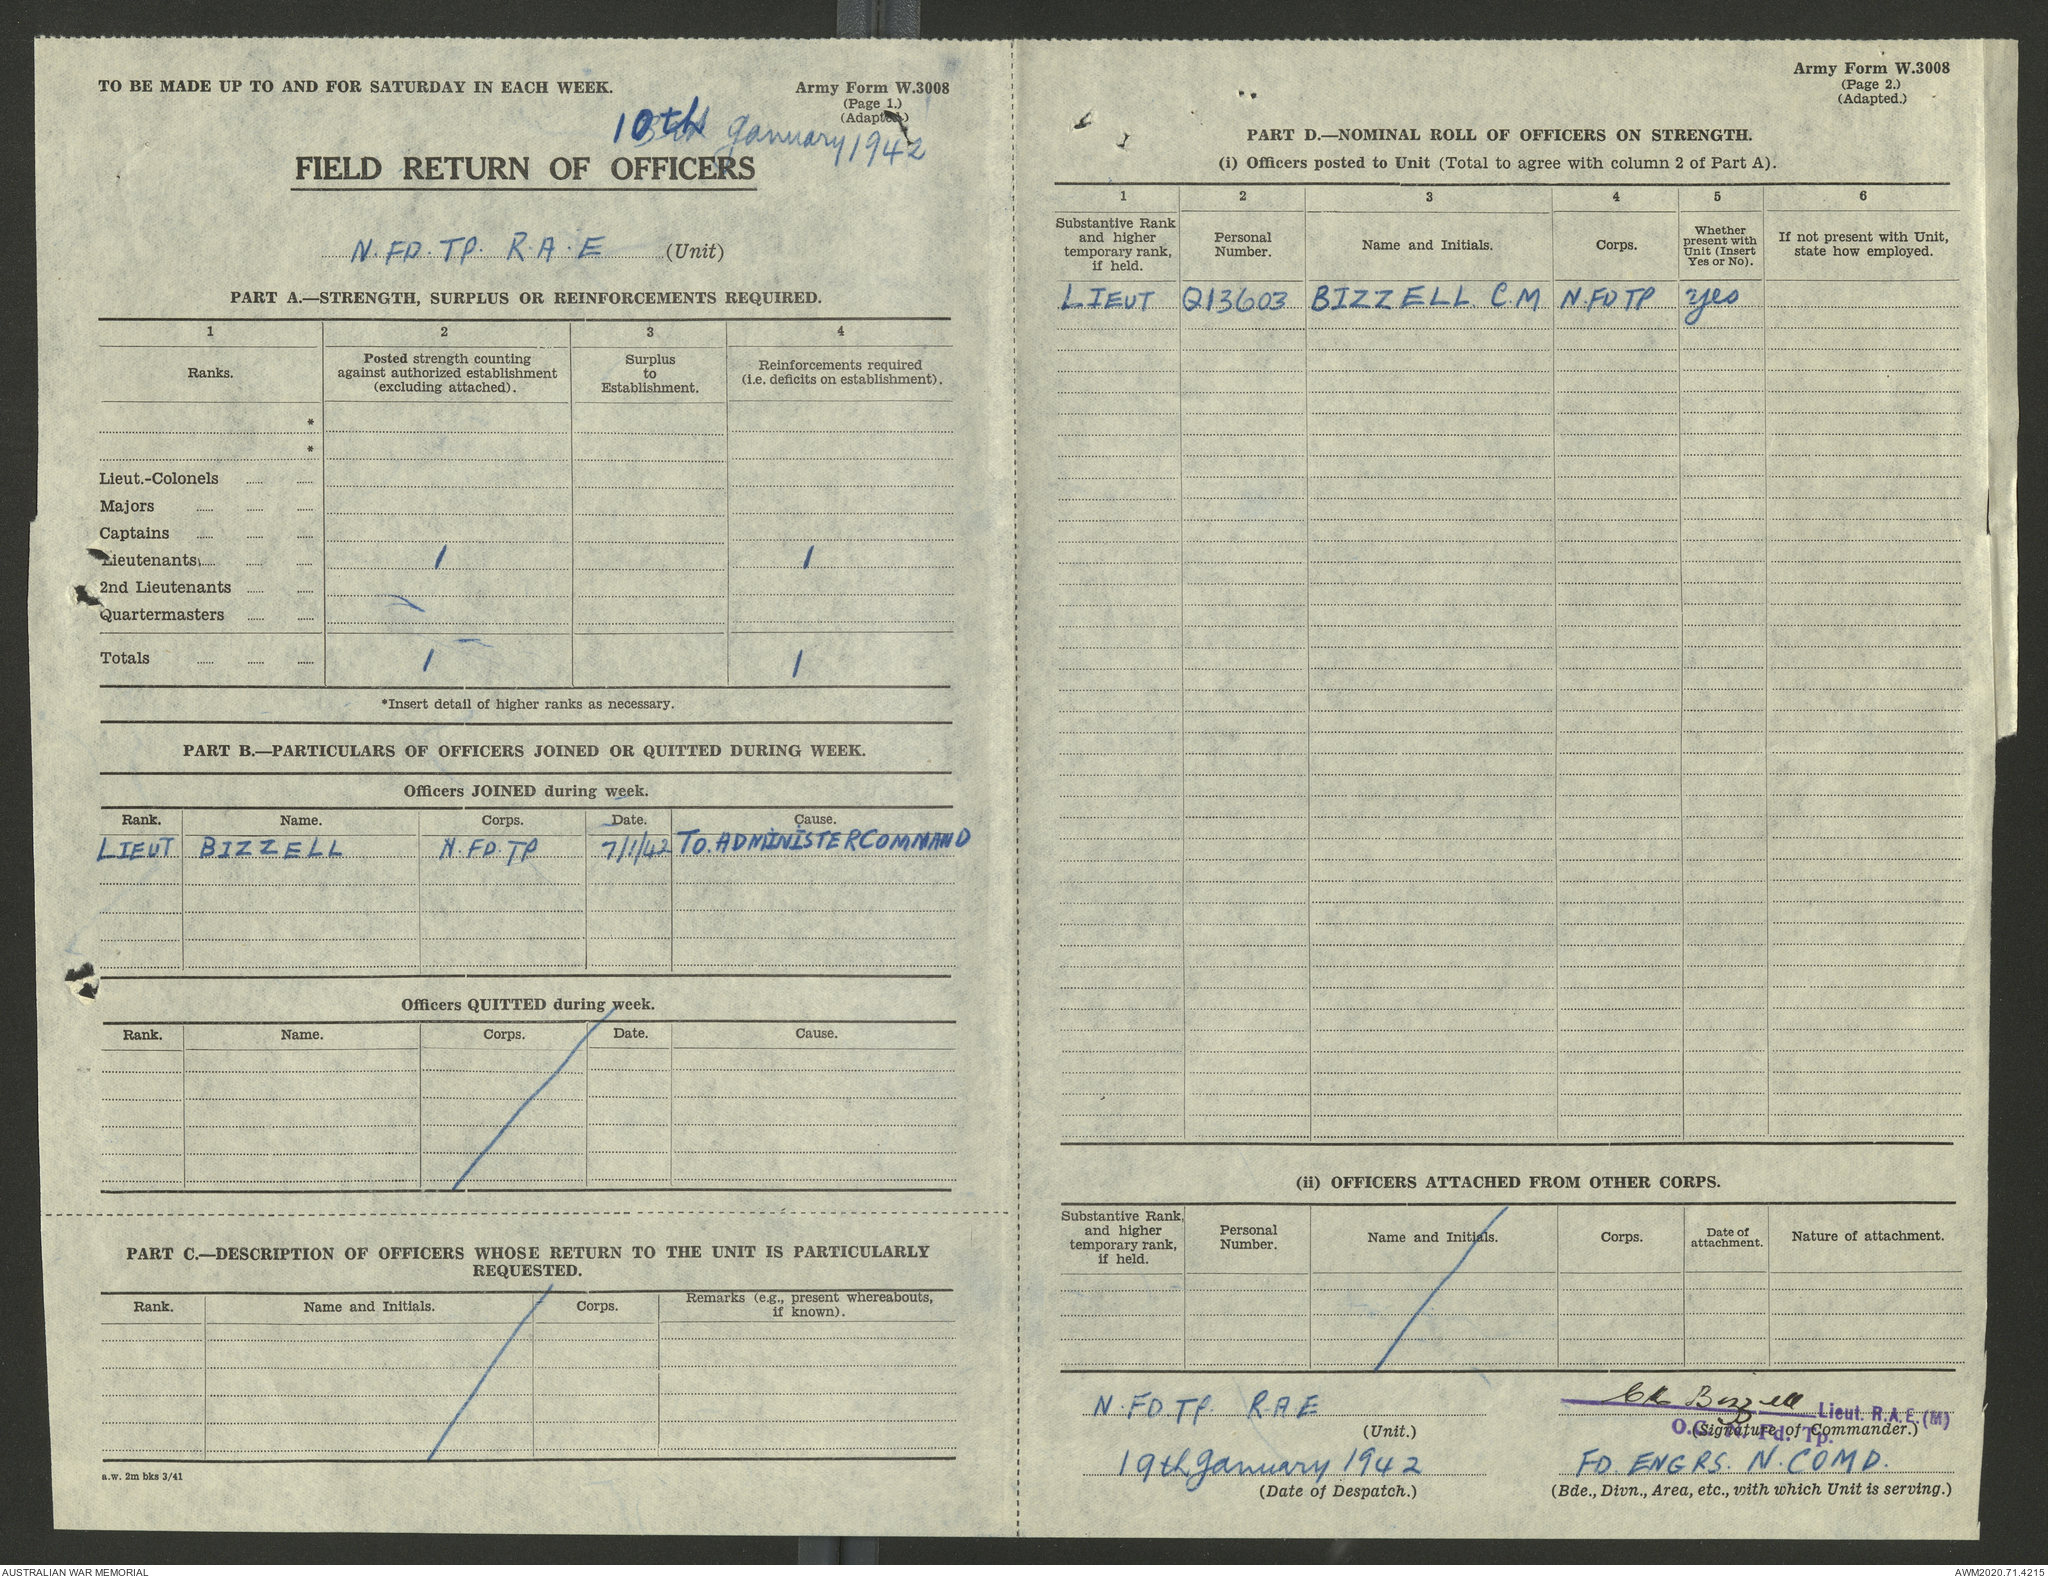 TO BE MADE UP TO AND FOR SATURDAY IN EACH WEEK.
Army Form W.3008
(Page 1.)
(Adapted.)
10th January 1942
FIELD RETURN OF OFFICERS
N. FD. TP. R.A.E (Unit)
PART A.—STRENGTH, SURPLUS OR REINFORCEMENTS REQUIRED.
1 2 3 4
Ranks. Posted strength counting against authorized establishment (excluding attached). Surplus to Establishment. Reinforcements required (i.e. deficits on establishment).
*
*
Lieut.-Colonels
Majors
Captains
Lieutenants 1 1
2nd Lieutenants
Quartermasters
Totals 1 1
*Insert detail of higher ranks as necessary.
PART B.—PARTICULARS OF OFFICERS JOINED OR QUITTED DURING WEEK.
Officers JOINED during week.
Rank. Name. Corps. Date. Cause.
LIEUT BIZZELL N. FD. TP 7/1/42 TO. ADMINISTER COMMAND
Officers QUITTED during week.
Rank. Name. Corps. Date. Cause.
PART C.—DESCRIPTION OF OFFICERS WHOSE RETURN TO THE UNIT IS PARTICULARLY
REQUESTED.
Rank. Name and Initials. Corps. Remarks (e.g., present whereabouts, if known).
a.w. 2m bks 3/41
Army Form W.3008
(Page 2.)
(Adapted.)
PART D.—NOMINAL ROLL OF OFFICERS ON STRENGTH.
(i) Officers posted to Unit (Total to agree with column 2 of Part A).
1 2 3 4 5 6
Substantive Rank and higher temporary rank, if held. Personal Number. Name and Initials. Corps. Whether present with Unit (Insert Yes or No). If not present with Unit, state how employed.
LIEUT Q13603 BIZZELL. C.M N. FD TP yes
(ii) OFFICERS ATTACHED FROM OTHER CORPS.
Substantive Rank, and higher temporary rank, if held. Personal Number. Name and Initials. Corps. Date of attachment. Nature of attachment.
N. FD. TP. R.A.E
(Unit.)
CM Bizzell Lieut. R.A.E. (M)
O.C. N. Fd. Tp.
(Signature of Commander.)
19th January 1942
(Date of Despatch.)
FD. ENGRS. N. COMD.
(Bde., Divn., Area, etc., with which Unit is serving.)
AUSTRALIAN WAR MEMORIAL
AWM2020.71.4215